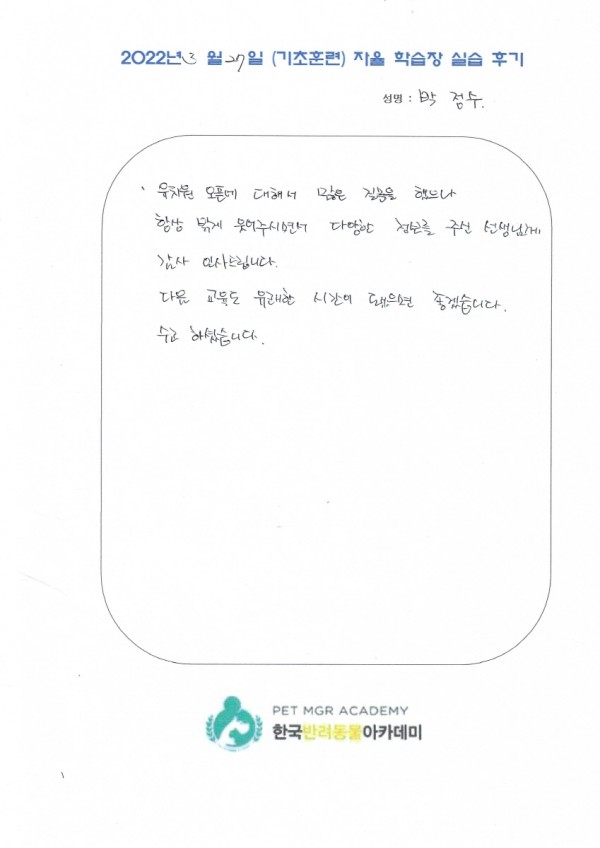 2022년 3 월 27일 (기초훈련) 자율 학습장 실습 후기
성명 : 박 정수.
유치원 오픈에 대해서 많은 질문을 했으나
항상 밝게 웃어주시면서 다양한 정보를 주신 선생님께
감사 인사드립니다.
다음 교육도 유쾌한 시간이 됐으면 좋겠습니다.
수고 하셨습니다.
PET MGR ACADEMY
한국반려동물아카데미